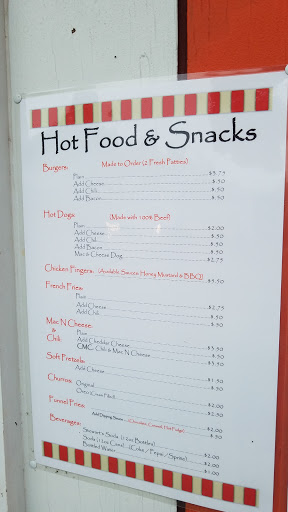 Hot Food & Snacks
Burgers: Made to Order (2 Fresh Patties)
Plain $3.75
Add Cheese $.50
Add Chili $.50
Add Bacon $.50
Hot Dogs: (Made with 100% Beef)
Plain $2.00
Add Cheese $.50
Add Chili $.50
Add Bacon $.50
Mac & Cheese Dog $2.75
Chicken Fingers: (Available Sauces: Honey Mustard & BBQ) $3.50
French Fries:
Plain
Add Cheese $2.75
Add Chili $.50
Mac N Cheese:
&
Chili:
Plain
Add Cheddar Cheese $3.50
CMC: Chili & Mac N Cheese $.50
Soft Pretzels: $3.50
Add Cheese $1.50
Churros: $.50
Original
Oreo (Creme Filled) $2.00
Funnel Fries: $2.50
Add Dipping Sauce $2.00
Beverages: $.50
Stewart's Soda (12oz Bottles)
Soda (12oz Cans) - (Coke / Pepsi / Sprite) $2.00
Bottled Water $1.00